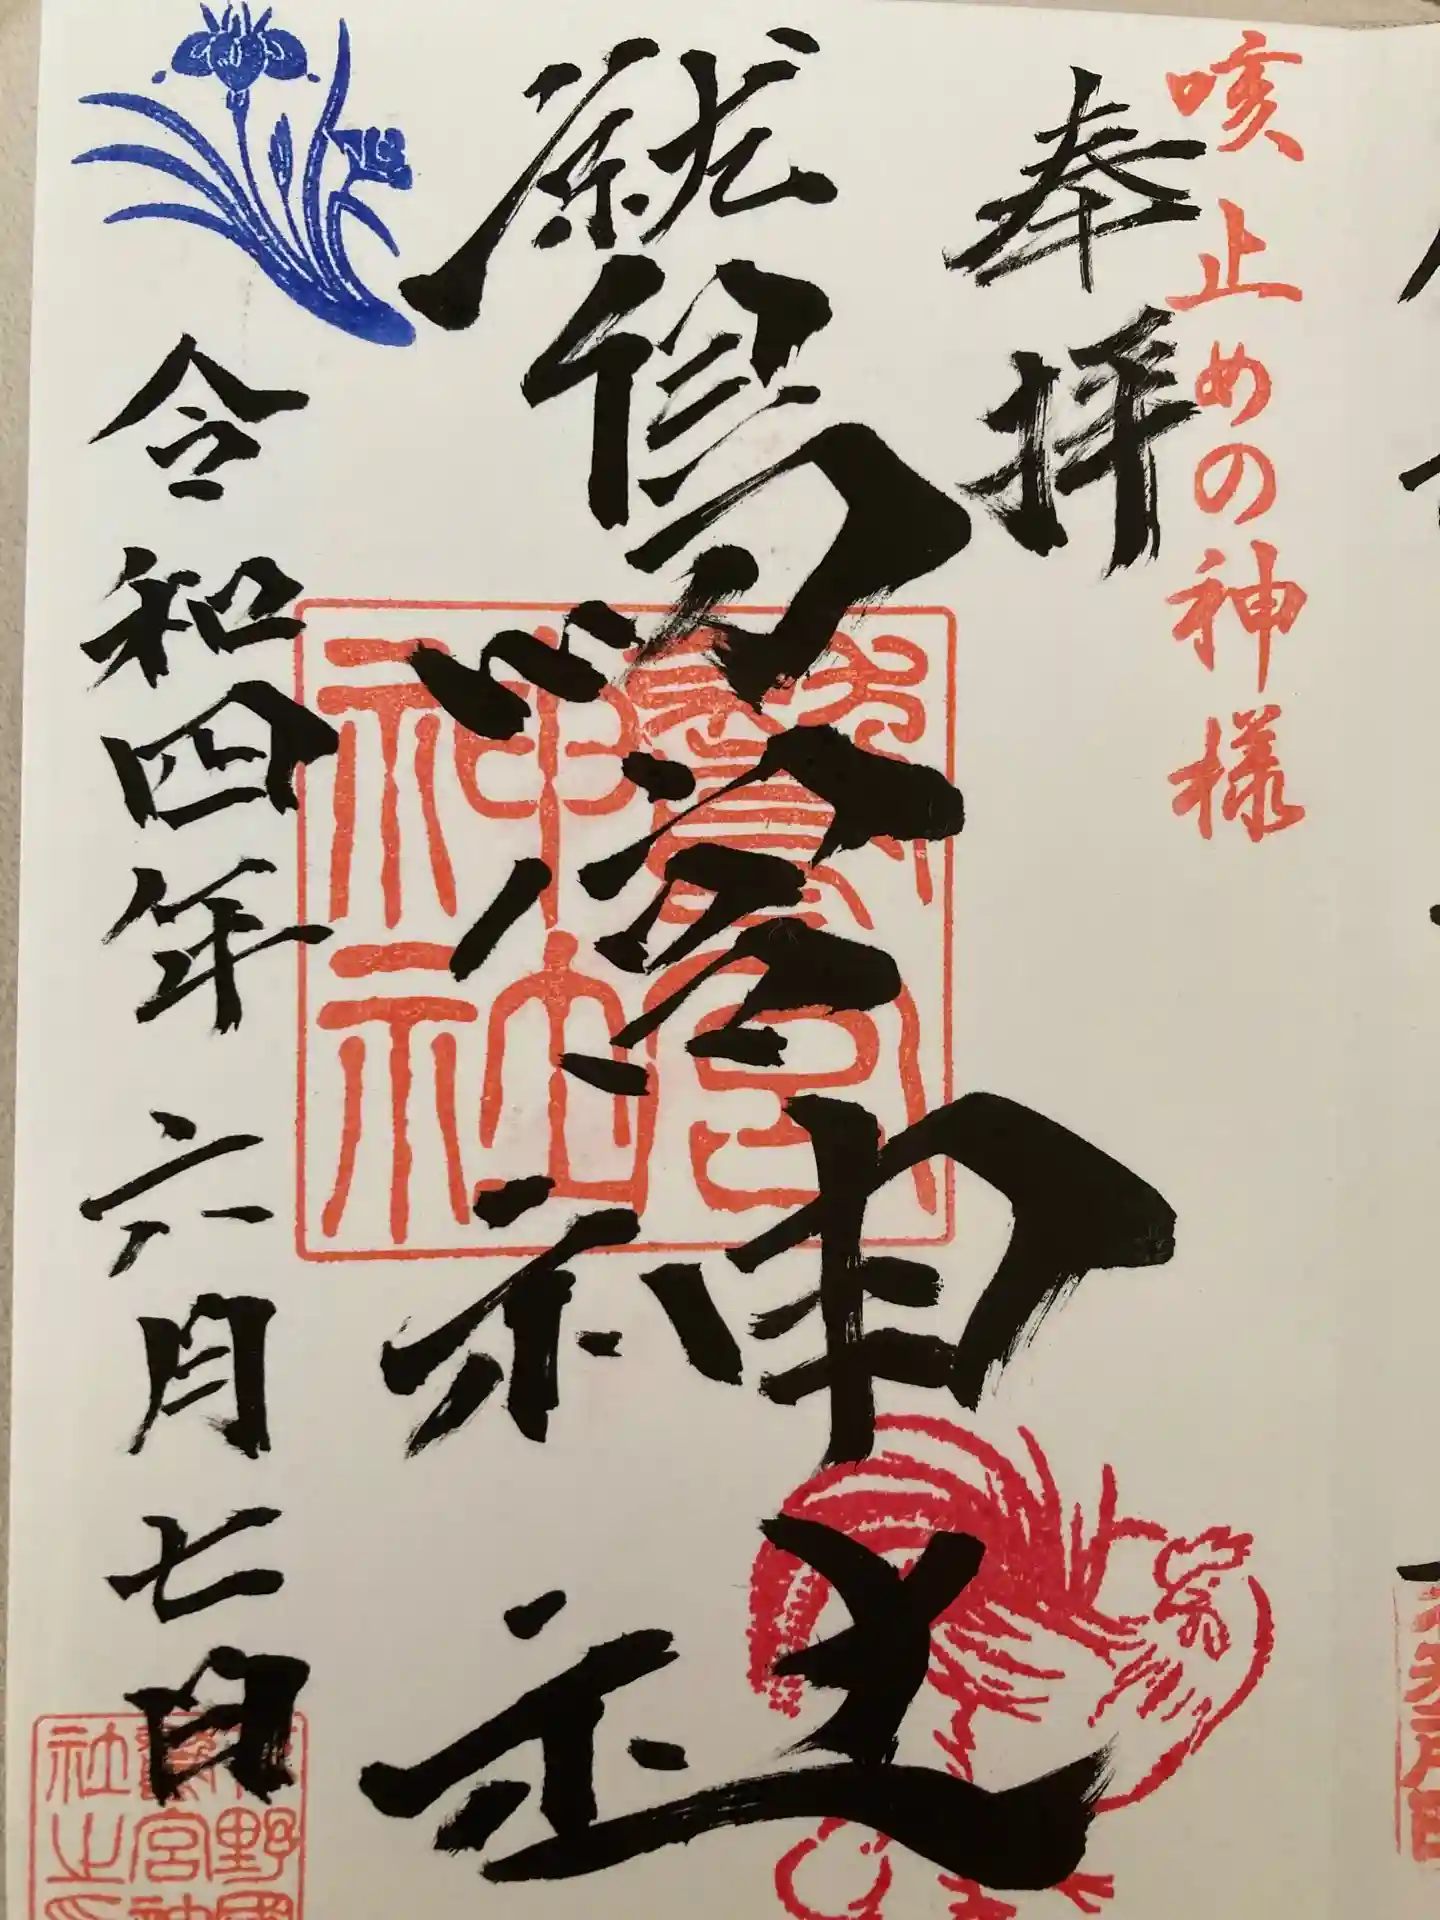 咳止めの神様
奉拝
鷲宮神社
鷲宮
神社
令和四年六月七日
野國
鷲宮神
社之印